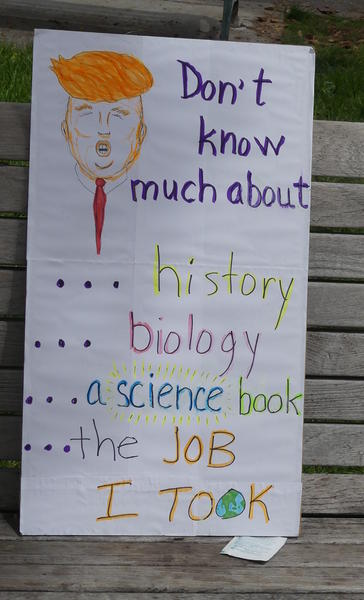 Don't
know
much about
... history
... biology
.... a science book
.... the JOB
I TOOK